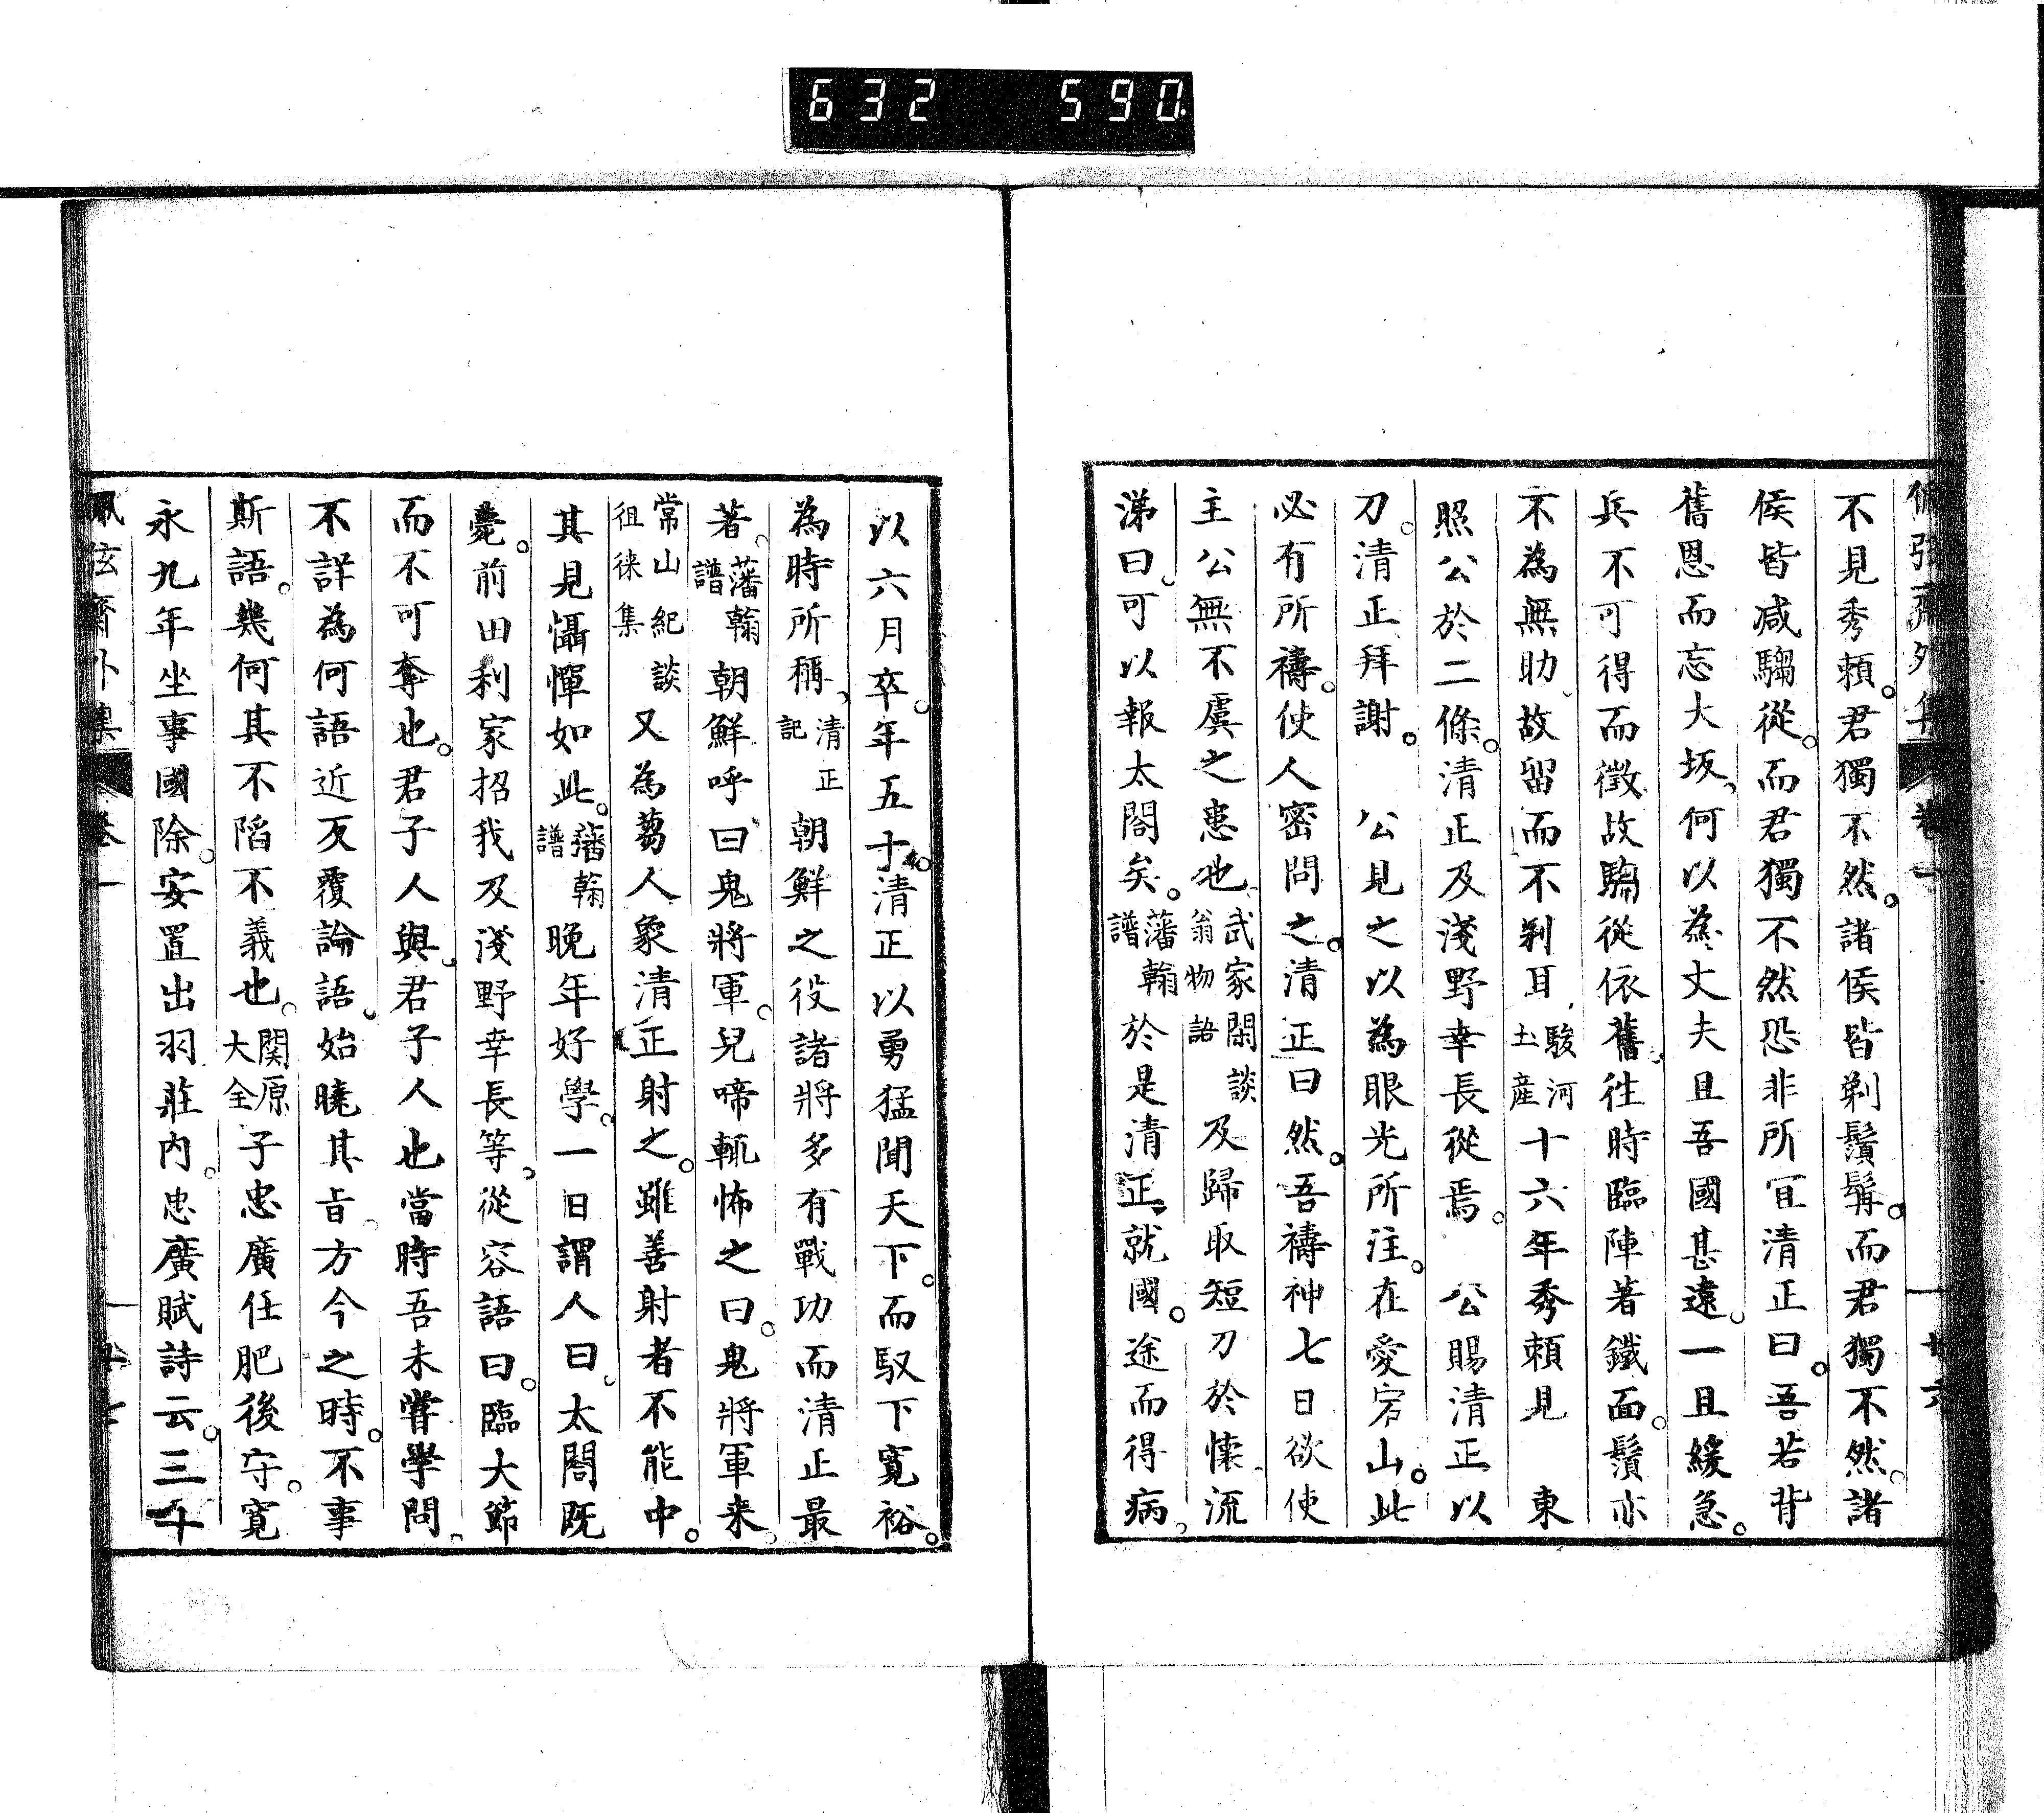 632 590
不見秀頼。君獨不然。諸侯皆剃鬚髯。而君獨不然。諸
侯皆減騶從。而君獨不然恐非所宜清正曰。吾若背
舊恩而忘大坂、何以為丈夫且吾國甚遠。一旦緩急。
兵不可得而徵故騶從依舊。往時臨陣著鐵面。鬚亦
不為無助。故留而不剃耳、駿河土産十六年秀頼見　東
照公於二條。清正及淺野幸長從焉。　公賜清正以
刀。清正拜謝。　公見之以為眼光所注。在愛宕山。此
必有所禱。使人密問之。清正曰然。吾禱神七日欲使
主公無不虞之患也、武家閑談翁物語及歸取短刀於懷、流
涕曰。可以報太閤矣。藩翰譜於是清正就國。途而得病。
以六月卒。年五十。清正以勇猛聞天下。而馭下寬裕。
為時所稱、清正記朝鮮之役諸將多有戰功而清正最
著。藩翰譜朝鮮呼曰鬼將軍。兒啼輒怖之曰。鬼將軍来、
常山紀談徂徠集又為蒭人象清正射之。雖善射者不能中。
其見懾憚如此。藩翰譜晚年好學。一日謂人曰。太閤既
薨。前田利家招我及淺野幸長等。從容語曰。臨大節
而不可奪也。君子人與。君子人也當時吾未嘗學問、
不詳為何語近反覆論語。始曉其旨。方今之時。不事
斯語。幾何其不陷不義也。関原大全子忠廣任肥後守。寛
永九年坐事國除。安置出羽莊内。忠廣賦詩云。三十
佩弦齋外集　卷一